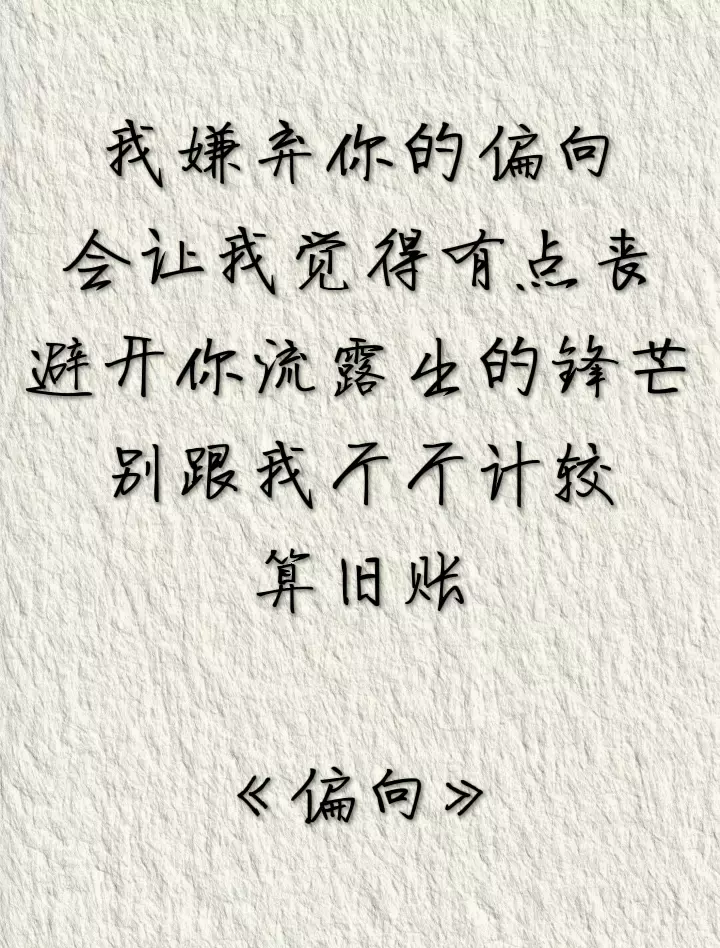 我嫌弃你的偏向
会让我觉得有点丧
避开你流露出的锋芒
别跟我个个计较
算旧账
《偏向》